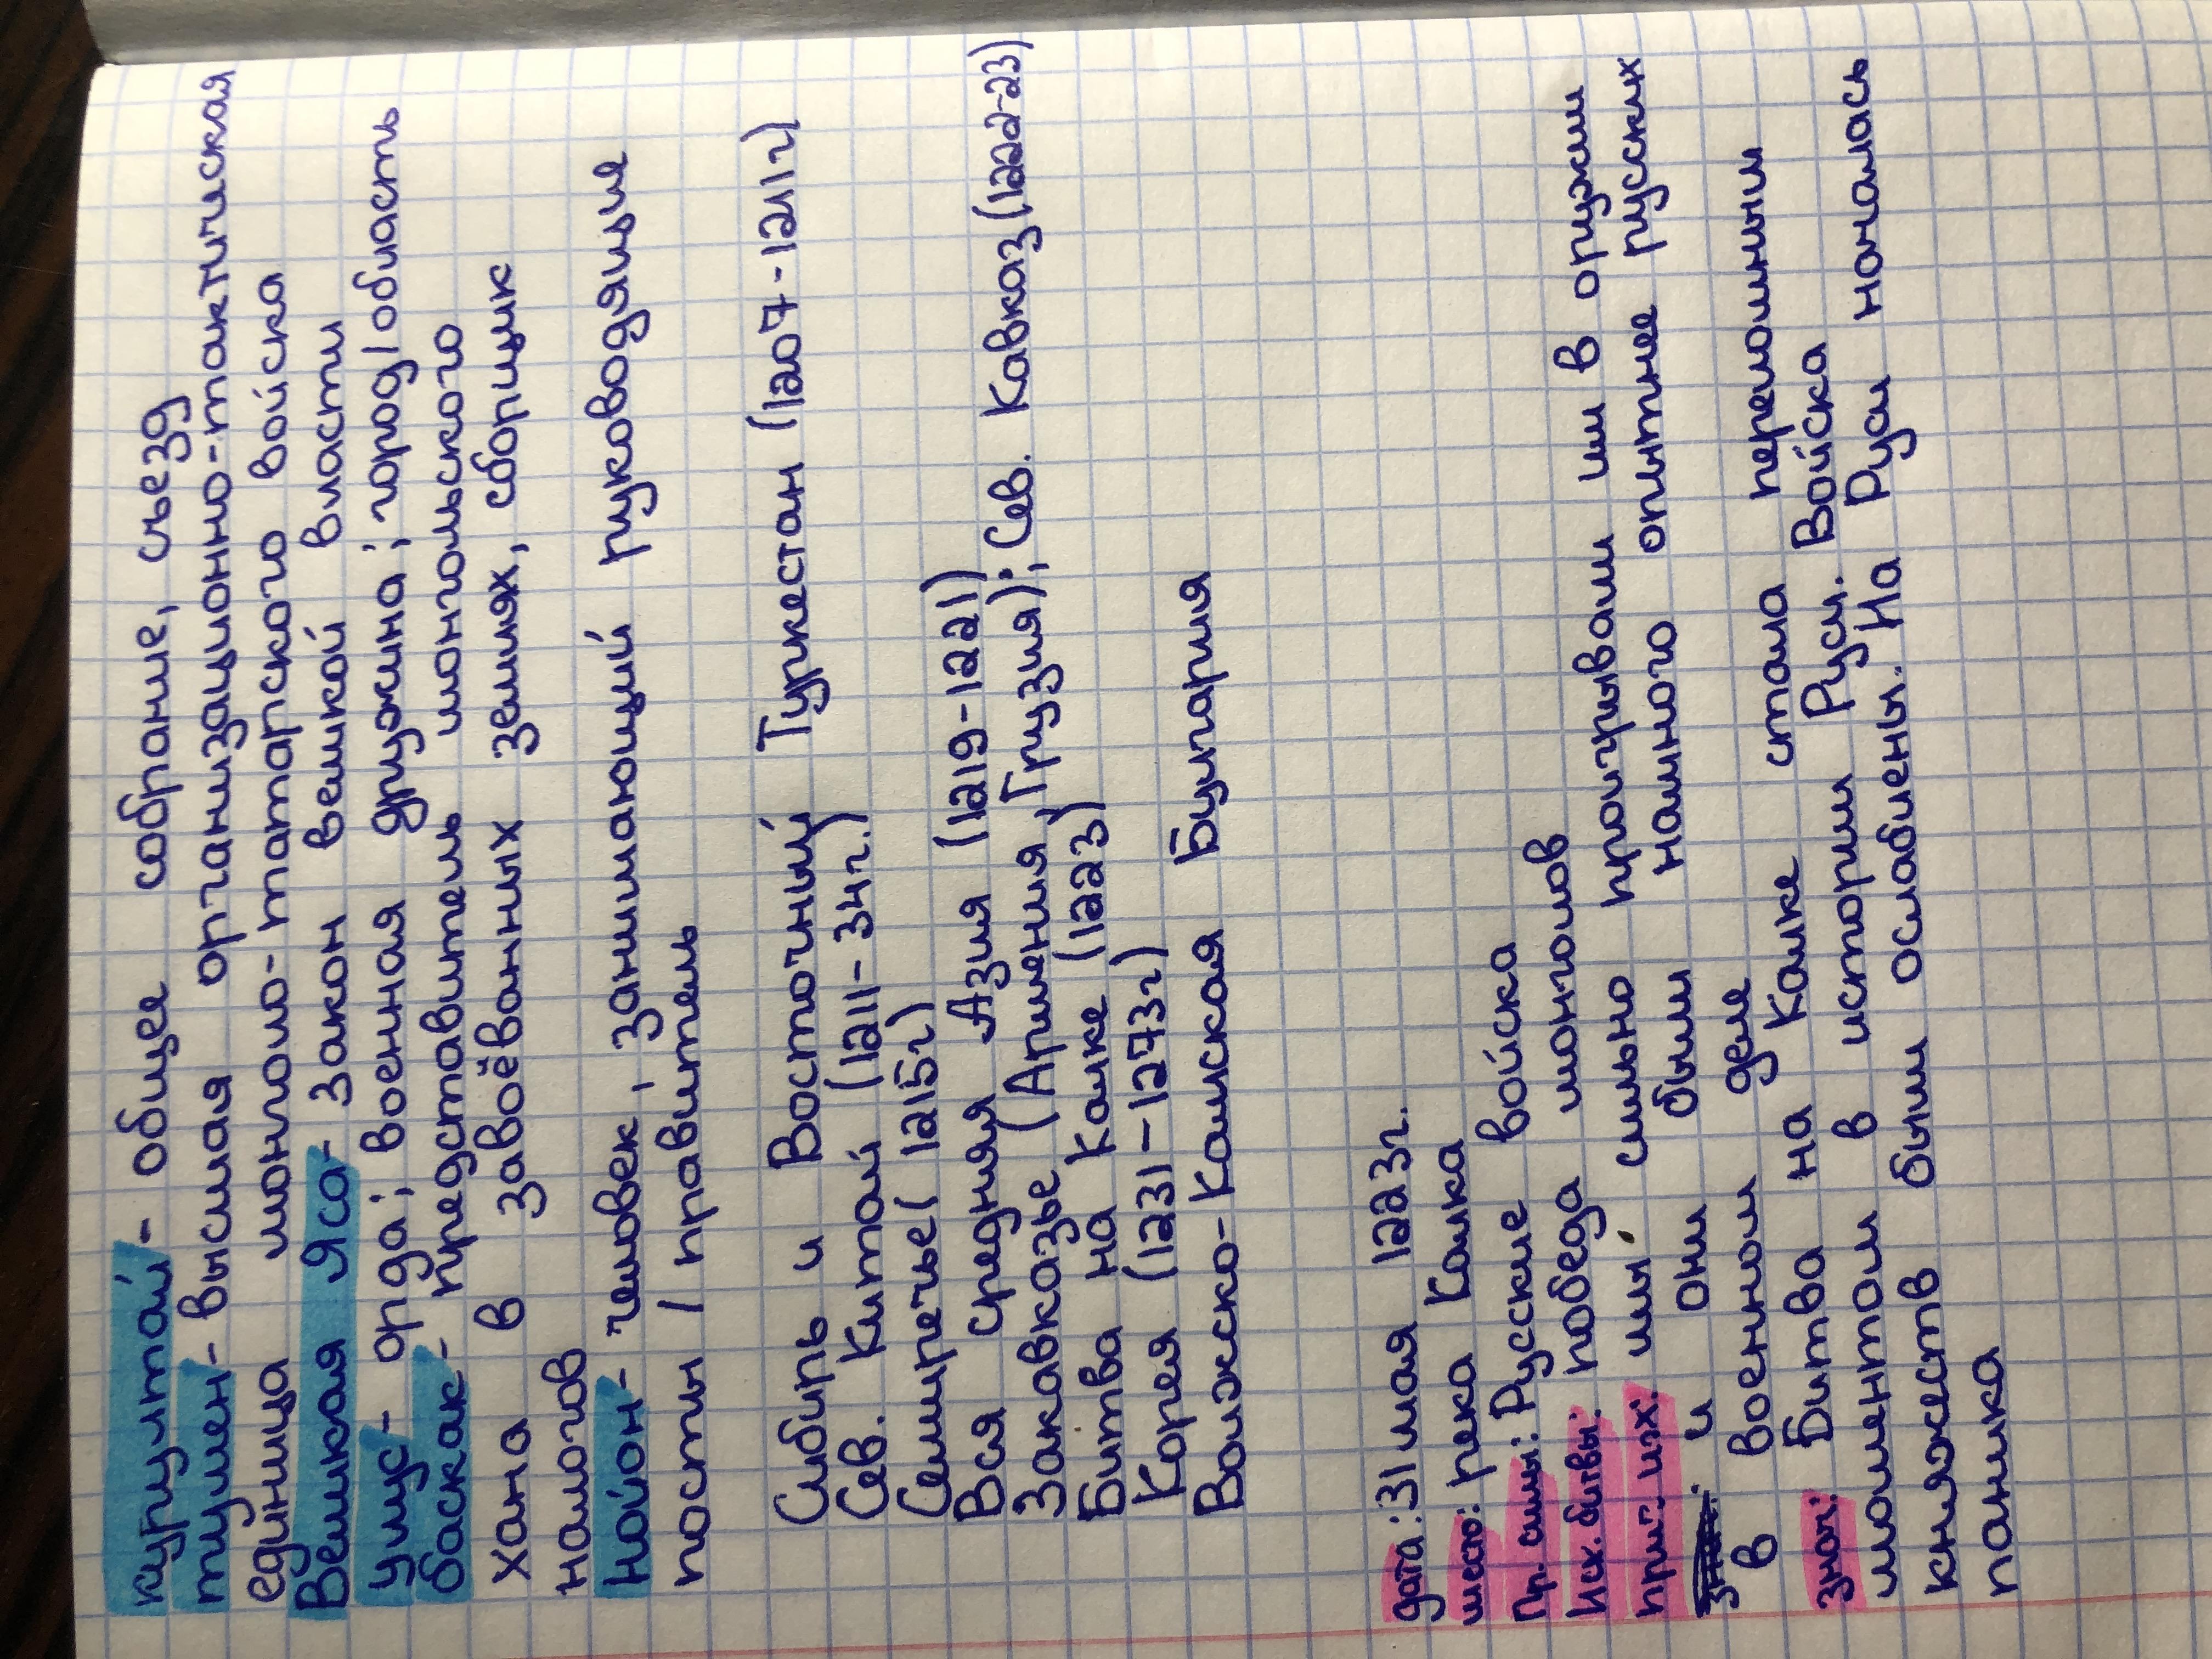 курултай - общее собрание, съезд
тумен - высшая организационно-тактическая
единица монголо-татарского войска
Великая Яса - закон великой власти
улус - орда; военная дружина; город/область
баскак - представитель монгольского
хана в завоёванных землях, сборщик
налогов
нойон - человек, занимающий руководящие
посты / правитель
Сибирь и Восточный Туркестан (1207-1211г)
Сев. Китай (1211-34г.)
Семиречье (1215г)
Вся средняя Азия (1219-1221)
Закавказье (Армения, Грузия); Сев. Кавказ (1222-23)
Битва на Калке (1223)
Корея (1231-1273г)
Волжско-Камская Булгария
дата: 31 мая 1223г.
место: река Калка
Пр. силы: Русские войска
Исх. битвы: победа монголов
прич. исх: мы сильно проигрывали им в оружии
и они были намного опытнее русских
в военном деле
знач: Битва на Калке стала переломным
моментом в истории Руси. Войска
княжеств были ослаблены. На Руси началась
паника